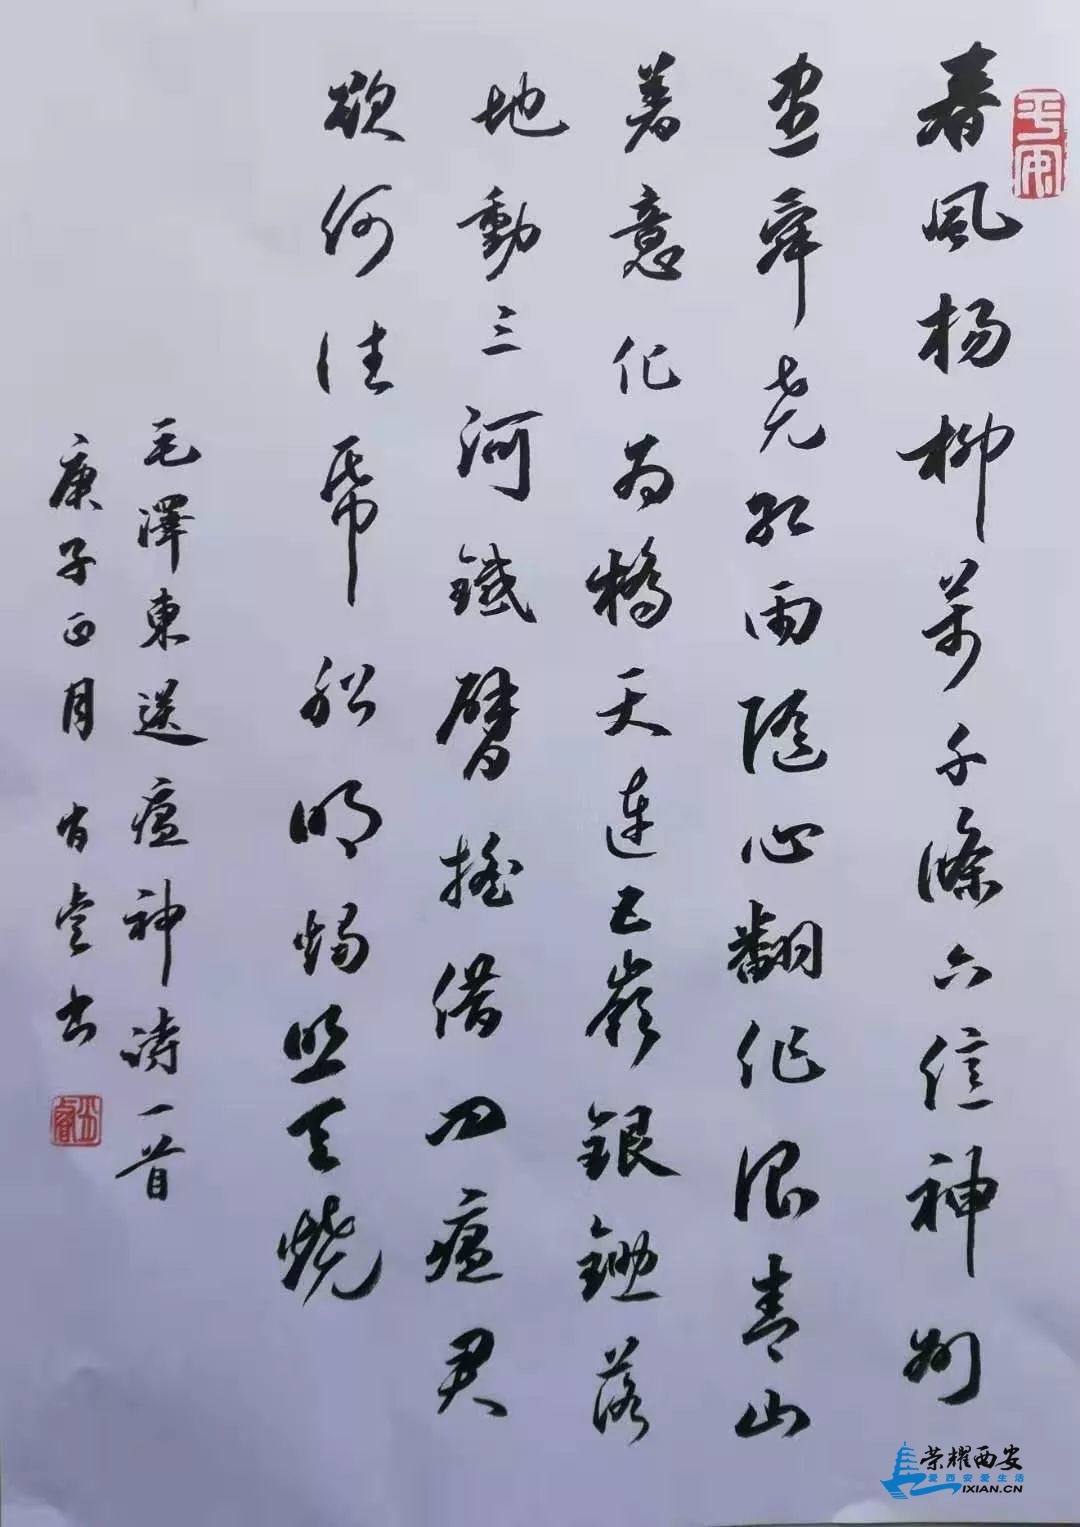 平安
春風杨柳萬千條六億神州
盡舜尧红雨隨心翻作浪青山
着意化为橋天連五嶺銀鋤落
地動三河鐵臂搖借问瘟君
欲何往帋船明烛照天烧
毛澤東送瘟神诗一首
庚子正月书
荣耀西安
爱西安爱生活
IXIAN.CN